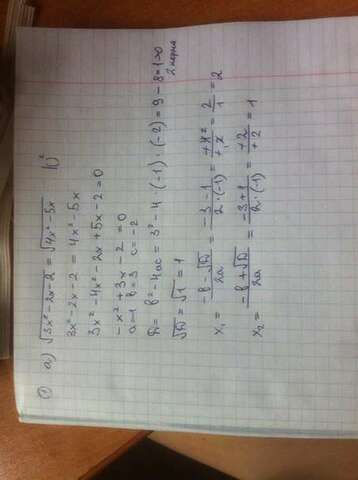 ① а) √(3x² - 2x - 2) = √(4x² - 5x) |( )²
3x² - 2x - 2 = 4x² - 5x
3x² - 4x² - 2x + 5x - 2 = 0
-x² + 3x - 2 = 0
a=-1 b=3 c=-2
D = b² - 4ac = 3² - 4 · (-1) · (-2) = 9 - 8 = 1 > 0
2 корня
√D = √1 = 1
x₁ = (-b - √D)/(2a) = (-3 - 1)/(2 · (-1)) = 2/1 = 2
x₂ = (-b + √D)/(2a) = (-3 + 1)/(2 · (-1)) = 1